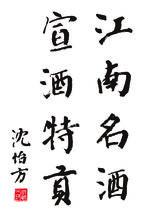 江南名酒
宣酒特贡
沈伯方